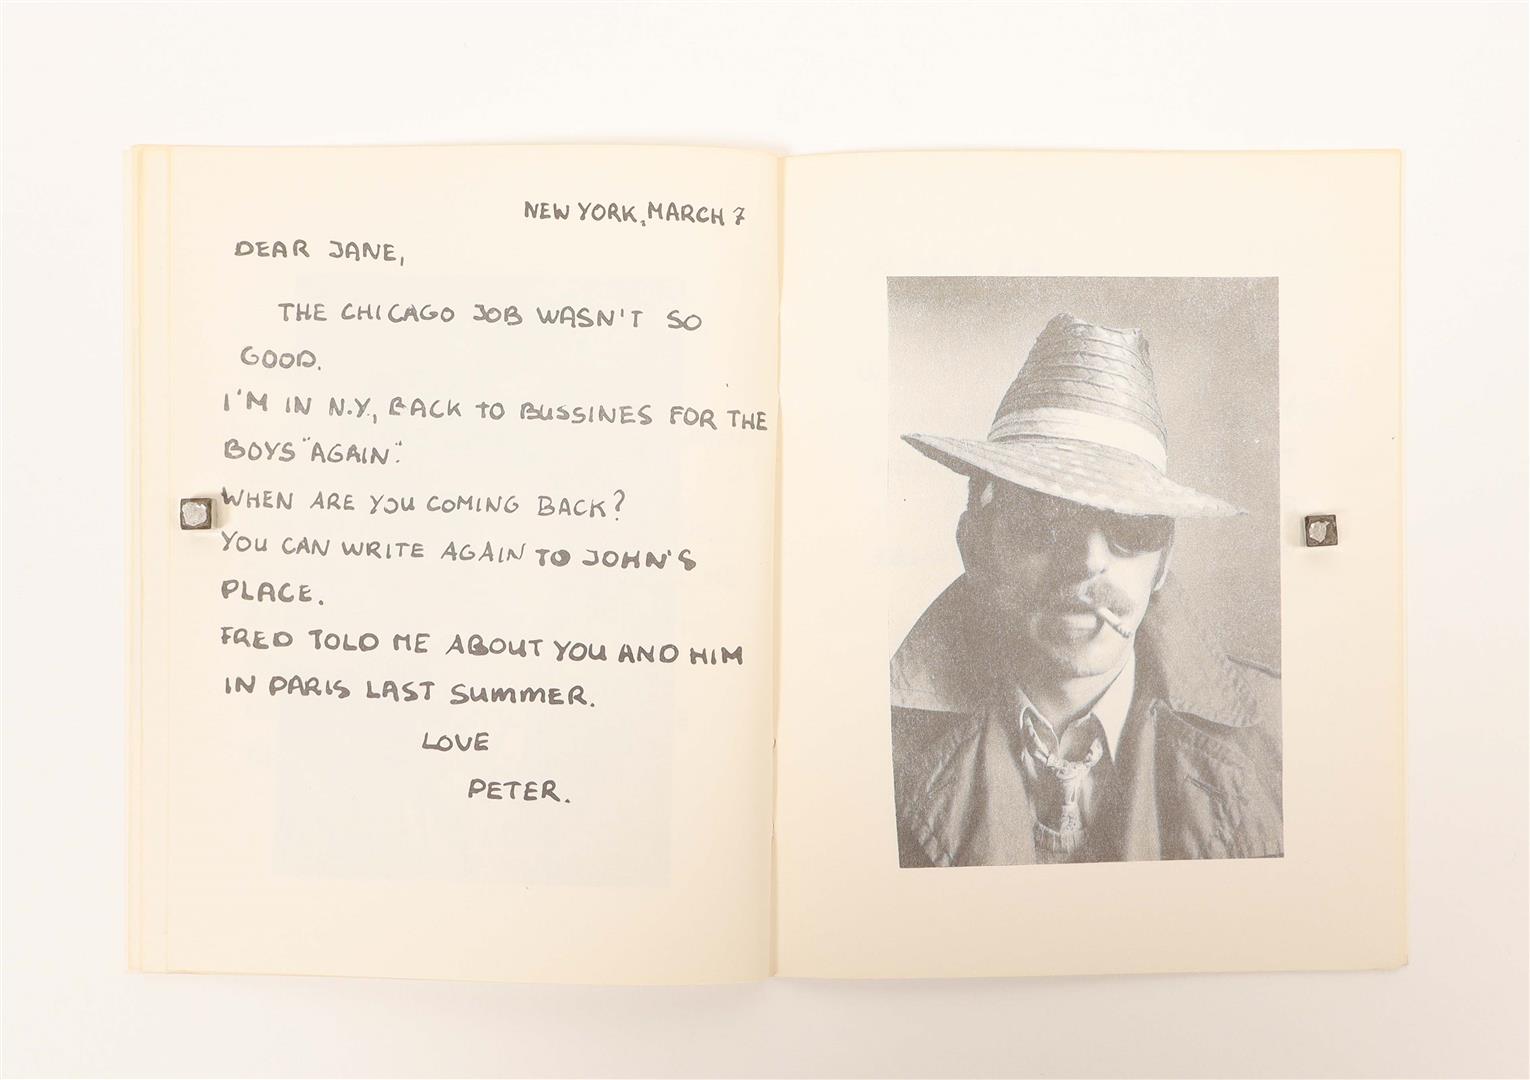 NEW YORK, MARCH 7
DEAR JANE,
THE CHICAGO JOB WASN'T SO
GOOD.
I'M IN N.Y., BACK TO BUSSINES FOR THE
BOYS "AGAIN".
WHEN ARE YOU COMING BACK?
YOU CAN WRITE AGAIN TO JOHN'S
PLACE.
FRED TOLD ME ABOUT YOU AND HIM
IN PARIS LAST SUMMER.
LOVE
PETER.